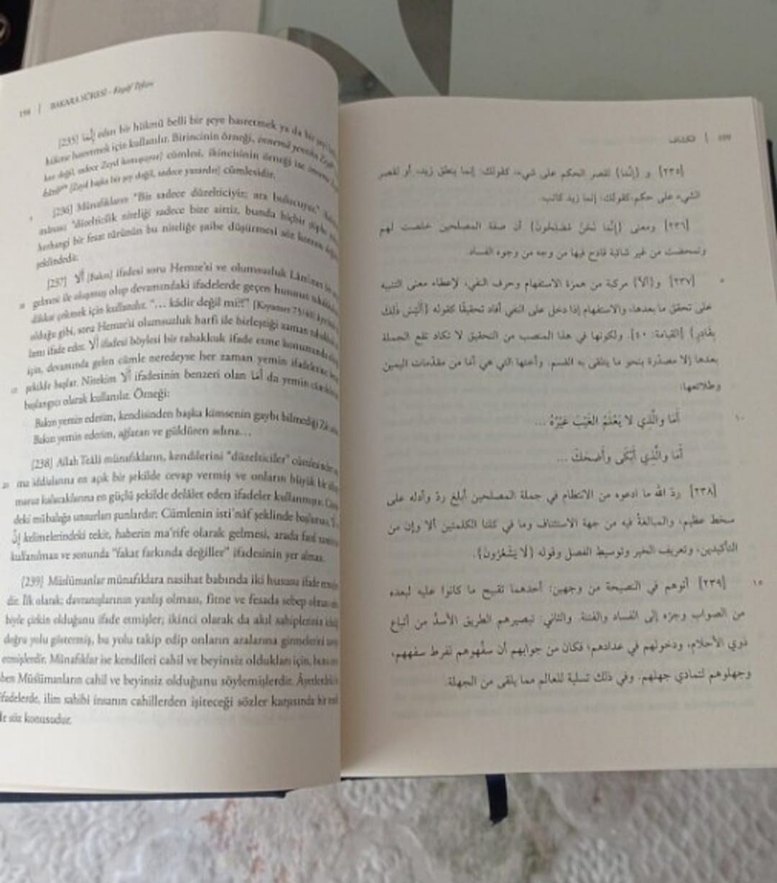 198 | BAKARA SÛRESİ - Keşşâf Tefsiri
[235] إنَّمَا edatı bir hükmü belli bir şeye hasretmek ya da bir şeyi
hükme hasretmek için kullanılır. Birincinin örneği, innemâ yentaliku Zeyd
cümlesi, ikincisinin örneği ise innemâ Zeyd
kâtib [Zeyd başka bir şey değil, sadece yazardır] cümlesidir.
[236] Münafıkların "Biz sadece düzelticiyiz; ara bulucuyuz."
mânası "düzelticilik niteliği sadece bize aittir, bunda hiçbir şüphe
herhangi bir fesat türünün bu niteliğe şaibe düşürmesi söz konusu değil"
şeklindedir.
[237] أَلَا [Bakın] ifadesi soru Hemze'si ve olumsuzluk Lâm'ının bir
gelmesi ile oluşmuş olup devamındaki ifadelerde geçen hususun
dikkat çekmek için kullanılır. "… kâdir değil mi?" [Kıyamet 75/40]
olduğu gibi, soru Hemze'si olumsuzluk harfi ile birleştiği zaman tahakkuk
lamı ifade eder. أَلَا ifadesi böylesi bir tahakkuk ifade etme konumunda
için, devamında gelen cümle neredeyse her zaman yemin ifadelerine
şekilde başlar. Nitekim أَلَا ifadesinin benzeri olan أَمَا da yemin
başlangıcı olarak kullanılır. Örneği:
Bakın yemin ederim, kendisinden başka kimsenin gaybı bilmediği Zât
Bakın yemin ederim, ağlatan ve güldüren adına…
[238] Allah Teâlâ münafıkların, kendilerini "düzelticiler"
ma iddialarına en açık bir şekilde cevap vermiş ve onların büyük bir
maruz kalacaklarına en güçlü şekilde delâlet eden ifadeler kullanmıştır.
deki mübalağa unsurları şunlardır: Cümlenin isti'nâf şeklinde başlaması,
إِنَّ kelimelerindeki tekit, haberin ma'rife olarak gelmesi, arada fasıl
kullanılması ve sonunda "fakat farkında değiller" ifadesinin yer alması.
[239] Müslümanlar münafıklara nasihat babında iki hususu ifade
dir. İlk olarak; davranışlarının yanlış olması, fitne ve fesada sebep olması
biyle çirkin olduğunu ifade etmişler; ikinci olarak da akıl sahiplerinin
doğru yolu göstermiş, bu yolu takip edip onların aralarına girmelerini
etmişlerdir. Münafıklar ise kendileri cahil ve beyinsiz oldukları için,
ben Müslümanların cahil ve beyinsiz olduğunu söylemişlerdir. Âyetlerdeki
ifadelerde, ilim sahibi insanın cahillerden işiteceği sözler karşısında bir
söz konusudur.
الكشاف | ١٩٩
[٢٣٥] و {إنَّمَا} لقصر الحكم على شيء، كقولك: إنما ينطلق زيد، أو لقصر
الشيء على حكم، كقولك: إنما زيد كاتب.
[٢٣٦] ومعنى {إِنَّمَا نَحْنُ مُصْلِحُونَ} أن صفة المصلحين خلصت لهم
وتمحضت من غير شائبة قادح فيها من وجه من وجوه الفساد.
[٢٣٧] و{ألَا} مركبة من همزة الاستفهام وحرف النفي، لإعطاء معنى التنبيه
على تحقق ما بعدها، والاستفهام إذا دخل على النفي أفاد تحقيقًا كقوله {أَلَيْسَ ذَلِكَ
بِقَادِرٍ} [القيامة: ٤٠]. ولكونها في هذا المنصب من التحقيق لا تكاد تقع الجملة
بعدها إلا مصدّرة بنحو ما يتلقى به القسم. وأختها التي هي أما من مقدّمات اليمين
وطلائعها:
أَمَا وَالَّذِي لَا يَعْلَمُ الْغَيْبَ غَيْرُهُ …
أَمَا وَالَّذِي أَبْكَى وَأَضْحَكَ …
[٢٣٨] ردّ الله ما ادعوه من الانتظام في جملة المصلحين أبلغ ردّ وأدله على
سخط عظيم، والمبالغة فيه من جهة الاستئناف وما في كلتا الكلمتين ألا وإن من
التأكيدين، وتعريف الخبر وتوسيط الفصل وقوله {لَا يَشْعُرُونَ}.
[٢٣٩] أتوهم في النصيحة من وجهين: أحدهما تقبيح ما كانوا عليه لبعده
من الصواب وجرّه إلى الفساد والفتنة. والثاني: تبصيرهم الطريق الأسدّ من أتباع
ذوي الأحلام، ودخولهم في عدادهم، فكان من جوابهم أن سفّهوهم لفرط سفههم،
وجهلوهم لتمادي جهلهم. وفي ذلك تسلية للعالم مما يلقى من الجهلة.